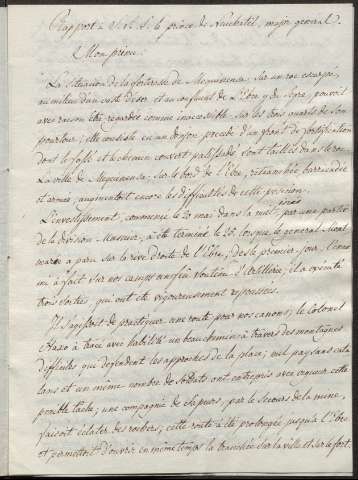 Rapport à S. A. S. le prince de Neuchatel, major general.
Monseigneur:
La situation de la forteresse de Mequinenza, sur un roc escarpé,
au milieu d'un vaste desert et au confluent de l'Ebre et du Segre, pouvoit
avec raison être regardée comme inaccessible sur les trois quarts de son
pourtour; elle consiste en un donjon precedé d'un front de fortification
dont le fossé et le chemin couvert palissadé sont taillés dans le roc.
La ville de Mequinenza, sur le bord de l'Ebre, retranchée, barricadée
et armée, augmentoit encore les difficultés de cette position.
L'investissement, commencé le 20 mai dans la nuit par une partie
de la division Musnier, a été terminé le 26 lorsque le general Mont
marie a paru sur la rive droite de l'Ebre; dès le premier jour l'enne
mi a fait sur nos camps un feu soutenu d'artillerie; il a exécuté
trois sorties, qui ont été vigoureusement repoussées.
Il s'agissoit de practiquer une route pour nos canons; le Colonel
Haxo a tracé avec habilité un beau chemin à travers des montagnes
difficiles qui defendent les approches de la place; mil paysans cata
lans et un même nombre de soldats ont entrepris avec ardeur cette
penible tache; une compagnie de sapeurs, par le secours de la mine,
faisoit éclater des rochers; cette route a été prolongée jusqu'à l'Ebre
et permettoit d'ouvrir en même temps la tranchée sur la ville et sur le fort.